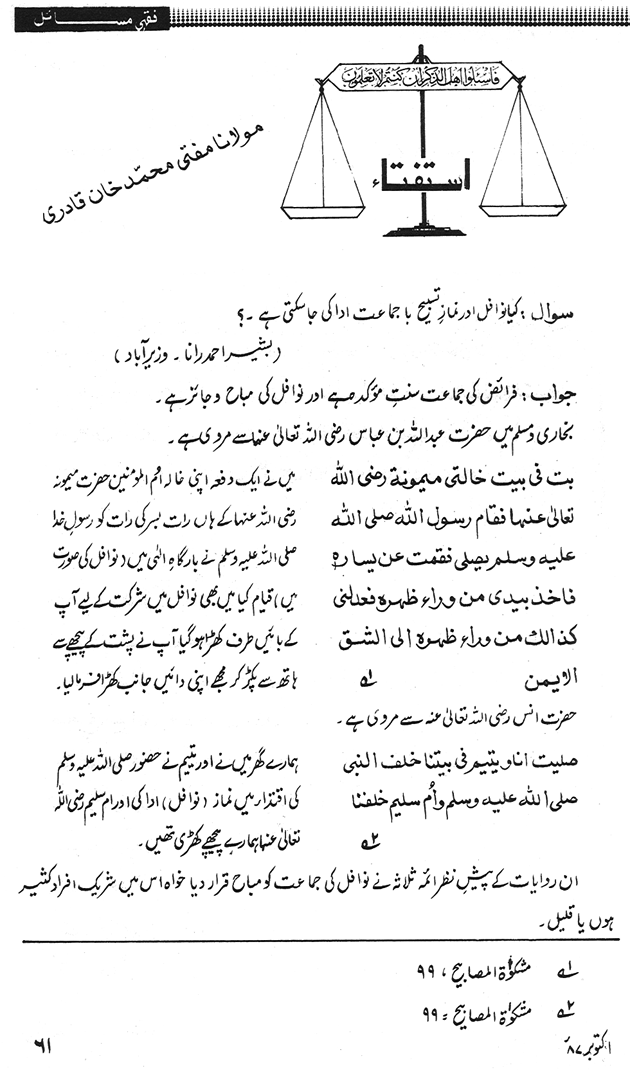 فقہی مسائل
فاسئلوا اهل الذكر ان كنتم لا تعلمون
استفتاء
مولانا مفتی محمّد خان قادری
سوال : کیا نوافل اور نمازِ تسبیح با جماعت ادا کی جا سکتی ہے ۔؟
(بشیر احمد رانا ۔ وزیر آباد )
جواب : فرائض کی جماعت سنتِ مؤکدہ ہے اور نوافل کی مباح و جائز ہے ۔
بخاری و مسلم میں حضرت عبد اللہ بن عباس رضی اللہ تعالیٰ عنہا سے مروی ہے ۔
بت فی بیت خالتی میمونة رضی اللہ
تعالیٰ عنہا فقام رسول اللہ صلی اللہ
علیہ وسلم یصلی فقمت عن یسارہ
فاخذ بیدی من وراء ظہرہ فعدلنی
کذالك من وراء ظہرہ الی الشق
الایمن ۱؎
میں نے ایک دفعہ اپنی خالہ ام المؤمنین حضرت میمونہ
رضی اللہ عنہا کے ہاں رات بسر کی رات کو رسولِ خدا
صلی اللہ علیہ وسلم نے بارگاہِ الٰہی میں (نوافل کی صورت
میں) قیام کیا میں بھی نوافل میں شرکت کے لیے آپ
کے بائیں طرف کھڑا ہو گیا آپ نے پشت کے پیچھے سے
ہاتھ سے پکڑ کر مجھے اپنی دائیں جانب کھڑا فرما لیا ۔
حضرت انس رضی اللہ تعالیٰ عنہ سے مروی ہے ۔
صلیت انا و یتیم فی بیتنا خلف النبی
صلی اللہ علیہ وسلم وأم سلیم خلفنا
۲؎
ہمارے گھر میں نے اور یتیم نے حضور صلی اللہ علیہ وسلم
کی اقتدار میں نماز (نوافل) ادا کی اور ام سلیم رضی اللہ
تعالیٰ عنہا ہمارے پیچھے کھڑی تھیں ۔
ان روایات کے پیشِ نظر ائمہ ثلاثہ نے نوافل کی جماعت کو مباح قرار دیا خواہ اس میں شریک افراد کثیر
ہوں یا قلیل ۔
۱؎ مشکوٰة المصابیح ، ۹۹
۲؎ مشکوٰة المصابیح = ۹۹
اکتوبر ۸۷ء
۶۱